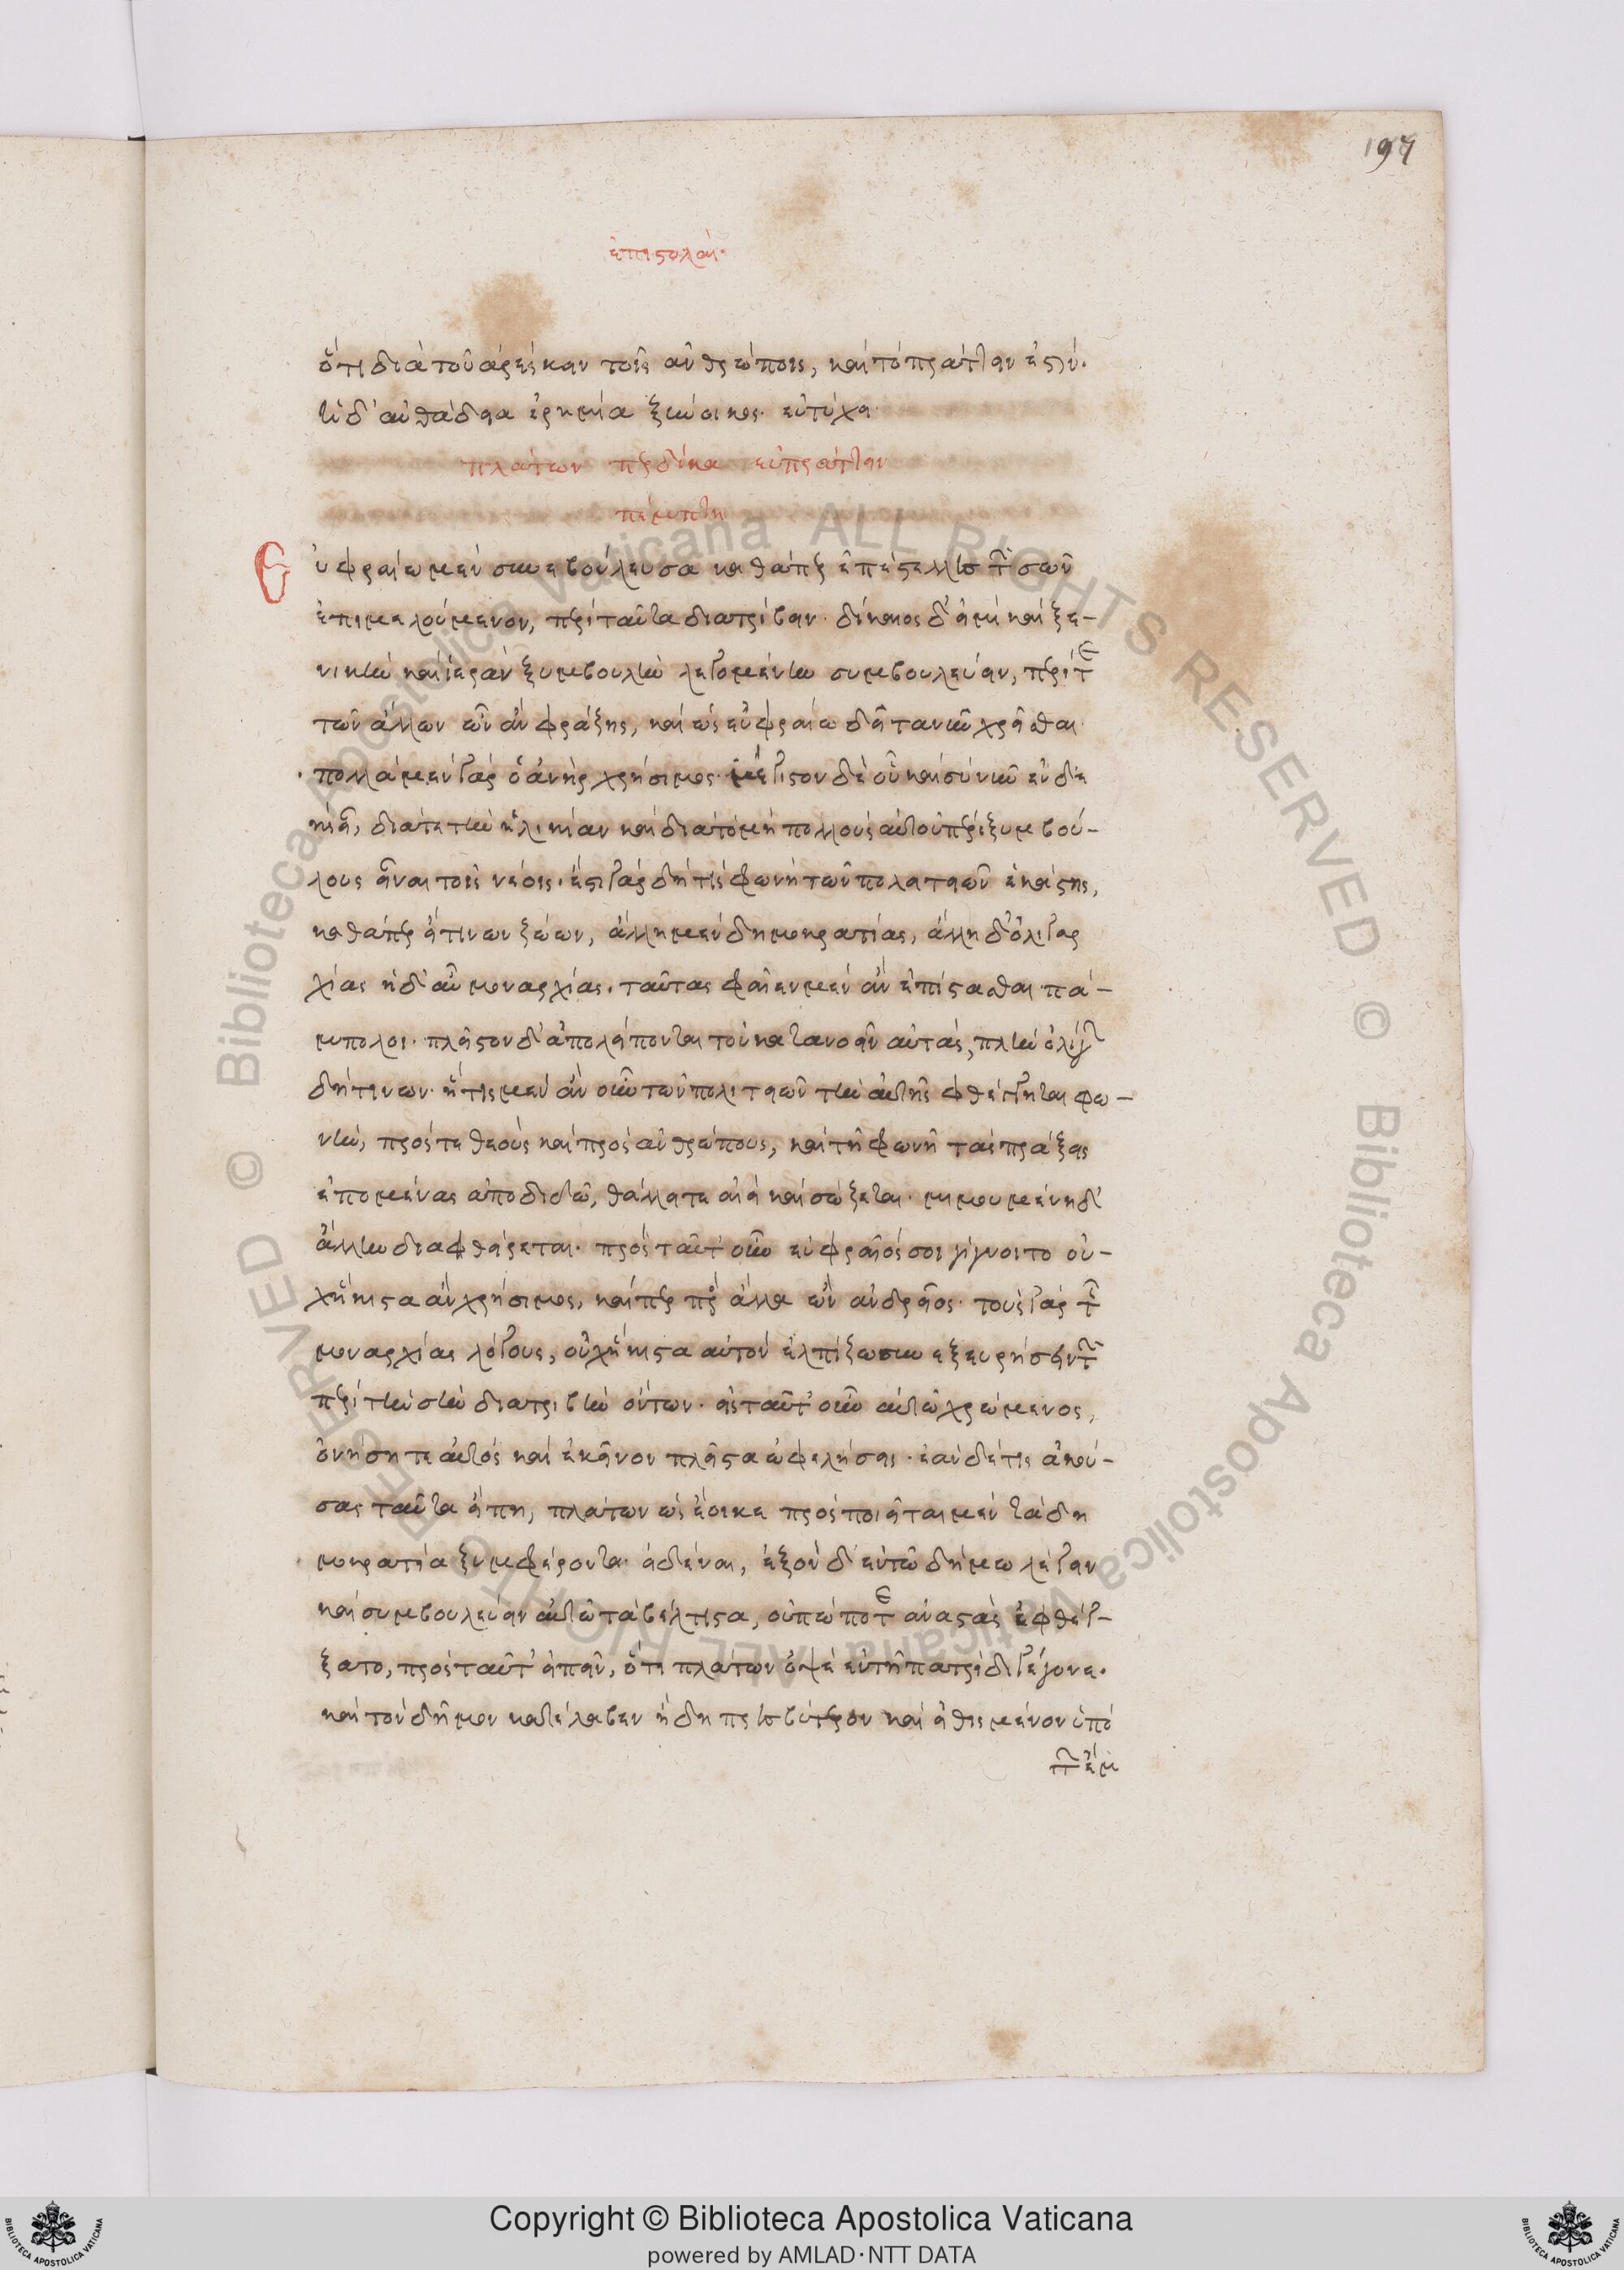 197
ἐπιστολαί·
ὅτι διὰ τοῦ ἀρέσκειν τοῖς ἀνθρώποις, καὶ τὸ πράττειν ἐστίν.
ἡ δ' αὐθάδεια ἐρημία ξύνοικος. εὐτύχει
πλάτων περδίκα εὐπράττειν
πέμπτη
Εὐφραίω μὲν συνεβούλευσα καθάπερ ἐπέστελλες τῶν σῶν
ἐπιμελούμενον, περὶ ταῦτα διατρίβειν. δίκαιος δ' εἰμὶ καὶ ξε-
νικὴν καὶ ἱερὰν ξυμβουλὴν λεγομένην συμβουλεύειν, περί τε
τῶν ἄλλων ὧν ἂν φράζῃς, καὶ ὡς εὐφραίω δεῖ τανῦν χρῆσθαι.
πολλὰ μὲν γὰρ ὁ ἀνὴρ χρήσιμος. μέγιστον δὲ οὗ καὶ σὺ νῦν ἐνδε
ής εἶ, διά τε τὴν ἡλικίαν καὶ διὰ τὸ μὴ πολλοὺς αὐτοῦ πέρι ξυμβού-
λους εἶναι τοῖς νέοις. ἔστι γὰρ δή τις φωνὴ τῶν πολιτειῶν ἑκάστης,
καθάπερ εἴ τινων ζώων, ἄλλη μὲν δημοκρατίας, ἄλλη δ' ὀλιγαρ
χίας ἡ δ' αὖ μοναρχίας. ταύτας φαῖεν μὲν ἂν ἐπίστασθαι πά-
μπολοι. πλεῖστον δ' ἀπολείπονται τοῦ κατανοεῖν αὐτάς, πλὴν ὀλίγων
δή τινων. ἥτις μὲν ἂν οὖν τῶν πολιτειῶν τὴν αὑτῆς φθέγγηται φω-
νήν, πρός τε θεοὺς καὶ πρὸς ἀνθρώπους, καὶ τῇ φωνῇ τὰς πράξεις
ἑπομένας ἀποδιδῶ, θάλλει τε ἀεὶ καὶ σώζεται. μιμουμένη δ'
ἄλλην διαφθείρεται. πρὸς ταῦτ' οὖν εὐφραῖός σοι γίγνοιτο οὐ-
χ ἥκιστα ἂν χρήσιμος, καίπερ πρὸς ἄλλα ὢν ἀνδρεῖος. τοὺς γὰρ τῆς
μοναρχίας λόγους, οὐχ ἥκιστα αὐτὸν ἐλπίζω συνεξευρήσειν τῶν
περὶ τὴν σὴν διατριβὴν ὄντων. εἰς ταῦτ' οὖν αὐτῷ χρώμενος,
ὀνήσῃ τε αὐτὸς καὶ ἐκεῖνον πλεῖστα ὠφελήσεις. ἐὰν δέ τις ἀκού-
σας ταῦτα εἴπῃ, πλάτων ὡς ἔοικε προσποιεῖται μὲν τὰ δη
μοκρατίᾳ ξυμφέροντα εἰδέναι, ἐξὸν δ' ἐν τῷ δήμω λέγειν
καὶ συμβουλεύειν αὐτῷ τὰ βέλτιστα, οὐπώποτε ἀναστὰς ἐφθέγ-
ξατο, πρὸς ταῦτ' εἰπεῖν, ὅτι πλάτων ὀψὲ ἐν τῇ πατρίδι γέγονε.
καὶ τὸν δῆμον κατέλαβεν ἤδη πρεσβύτερον καὶ εἰθισμένον ὑπὸ
τῶν ἔμ